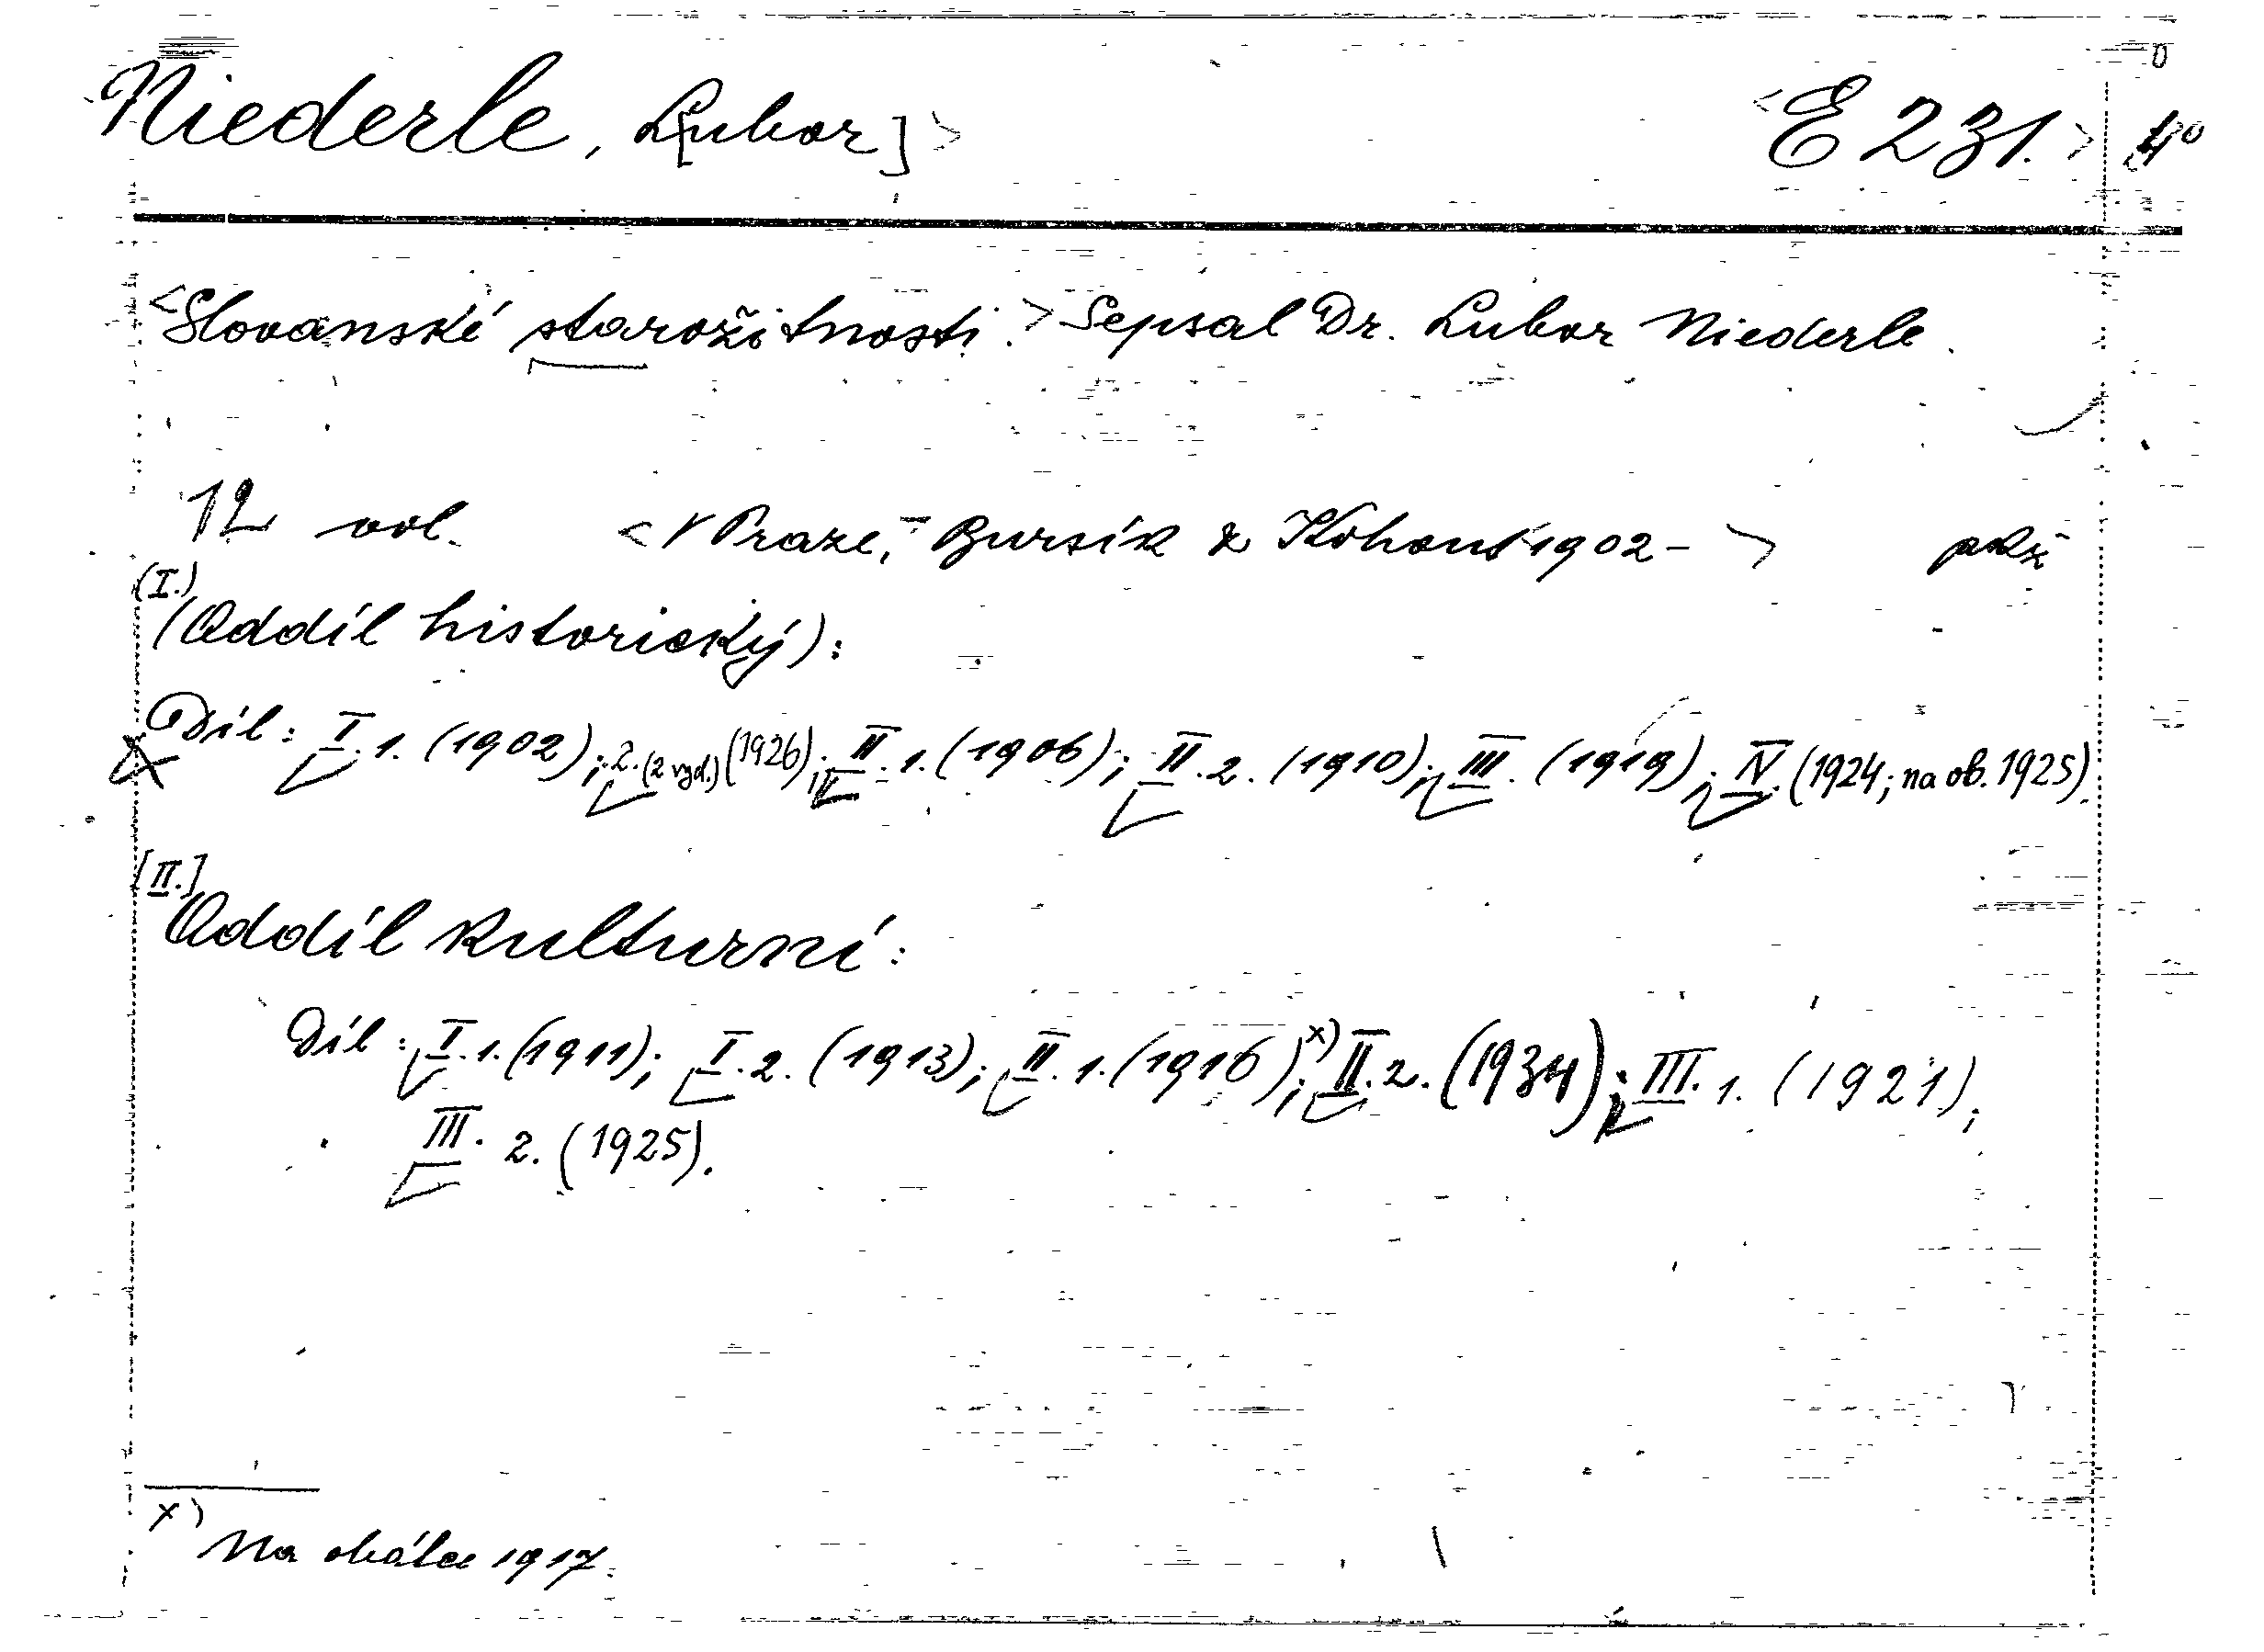 Niederle, L[ubor] > <E 231. > 4°
<Slovanské starožitnosti.> Sepsal Dr. Lubor Niederle.
12 vol. <V Praze, Bursík & Kohout 1902- >
(I.)
(Oddíl historický):
Díl: I. 1. (1902); 2. (2 vyd.) (1926); II. 1. (1906); II. 2. (1910); III. (1919); IV. (1924; na ob. 1925).
[II.]
Oddíl kulturní:
Díl: I. 1. (1911); I. 2. (1913); II. 1. (1916)x); II. 2. (1934); III. 1. (1921);
III. 2. (1925).
x) Na obálce 1917.